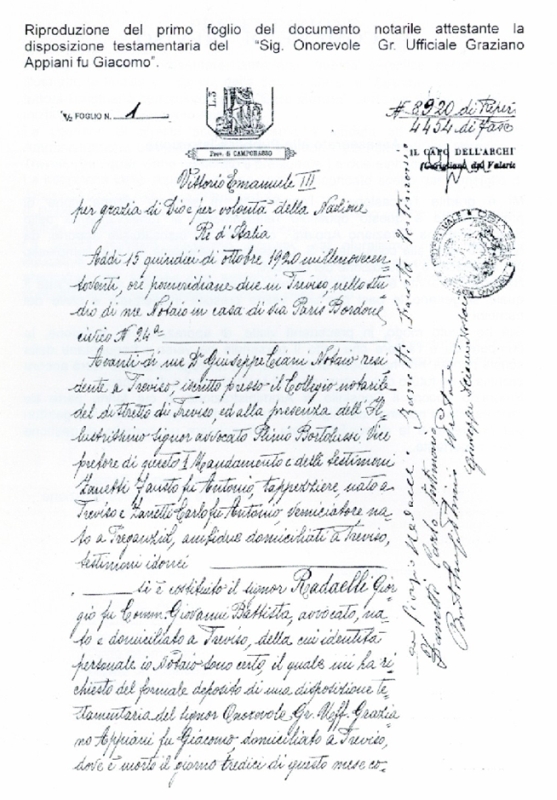 Riproduzione del primo foglio del documento notarile attestante la
disposizione testamentaria del “Sig. Onorevole Gr. Ufficiale Graziano
Appiani fu Giacomo”.
FOGLIO N. 1
# 8920 di Reper
4454 di Fasc
IL CAPO DELL'ARCHI
Vittorio Emanuele III
per grazia di Dio e per volontà della Nazione
Re d'Italia
Addì 15 quindici di ottobre 1920 millenovecen
toventi, ore pomeridiane due in Treviso, nello stu
dio di me Notaio in casa di via Paris Bordone
civico N 24a
Avanti di me Dr Giuseppe Ciani Notaio resi
dente a Treviso iscritto presso il Collegio notarile
del distretto di Treviso, ed alla presenza dell'Il
lustrissimo signor avvocato Plinio Bortolussi Vice
pretore di questo I Mandamento e delli testimoni
Zanetti Fausto fu Antonio, tappezziere, nato a
Treviso e Zanetti Carlo fu Antonio, verniciatore na
to a Preganziol, amfidue domiciliati a Treviso,
testimoni idonei
si è costituito il signor Radaelli Gior
gio fu Comm. Giovanni Battista, avvocato, na
to e domiciliato a Treviso, della cui identità
personale io Notaio sono certo, il quale mi ha ri
chiesto del formale deposito di una disposizione te
stamentaria del signor Onorevole Gr. Uff. Grazia
no Appiani fu Giacomo, domiciliato a Treviso,
dove è morto il giorno tredici di questo mese co-
Zanetti Fausto testimonio
Zanetti Carlo testimonio